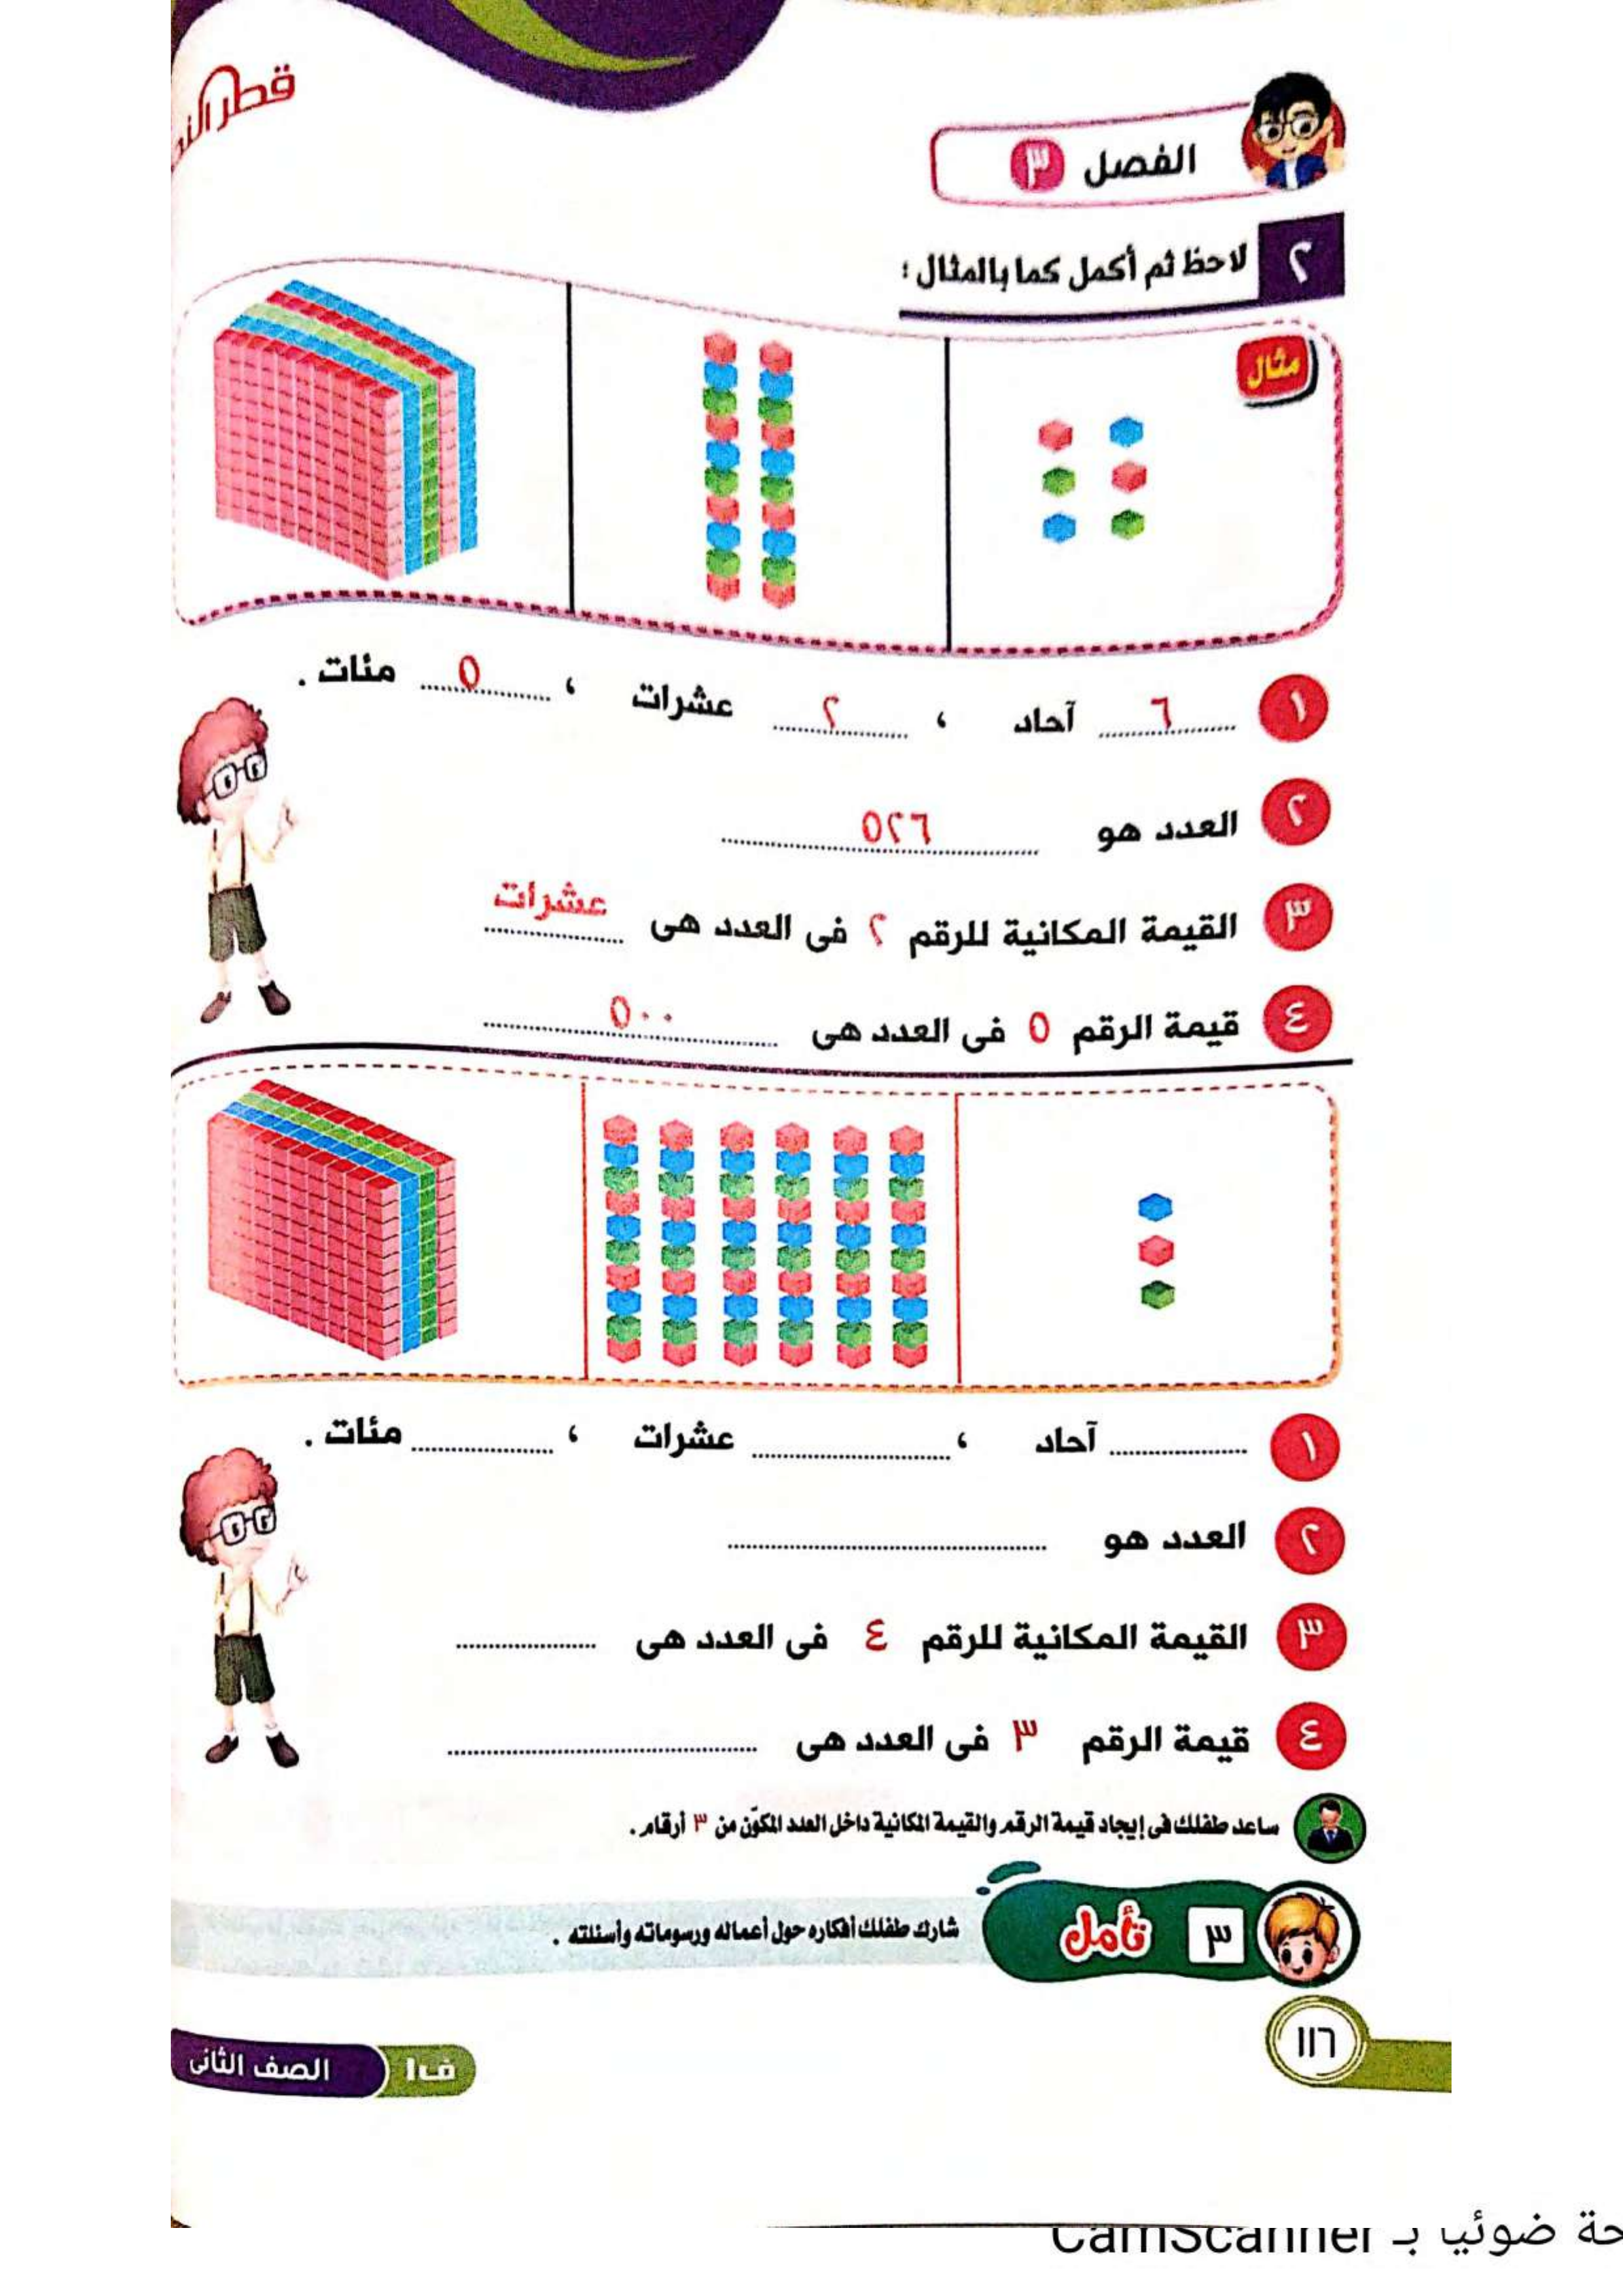 قطر
الفصل ٣
٢ لاحظ ثم أكمل كما بالمثال :
مثال
١ ٦ آحاد ، ٢ عشرات ، ٥ مئات .
٢ العدد هو ٥٢٦
٣ القيمة المكانية للرقم ٢ فى العدد هى عشرات
٤ قيمة الرقم ٥ فى العدد هى ٥٠٠
١ .................... آحاد ، .................... عشرات ، .................... مئات .
٢ العدد هو ....................
٣ القيمة المكانية للرقم ٤ فى العدد هى ....................
٤ قيمة الرقم ٣ فى العدد هى ....................
ساعد طفلك فى إيجاد قيمة الرقم والقيمة المكانية داخل العدد المكوّن من ٣ أرقام .
٣ تأمل شارك طفلك أفكاره حول أعماله ورسوماته وأسئلته .
١١٦
الصف الثانى ف١
ضوئيا بـ CamScanner